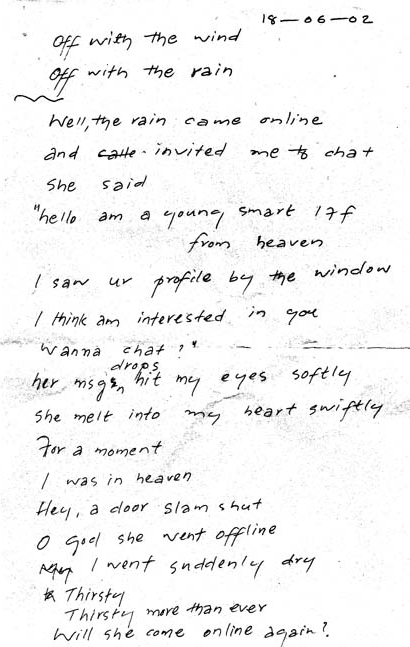 18-06-02
Off with the wind
Off with the rain
Well, the rain came online
and calle invited me to chat
she said
"hello am a young smart 17f
from heaven
I saw ur profile by the window
I think am interested in you
wanna chat?"
drops
her msgs hit my eyes softly
she melt into my heart swiftly
For a moment
I was in heaven
Hey, a door slam shut
O god she went offline
I went suddenly dry
Thirsty
Thirsty more than ever
Will she come online again?